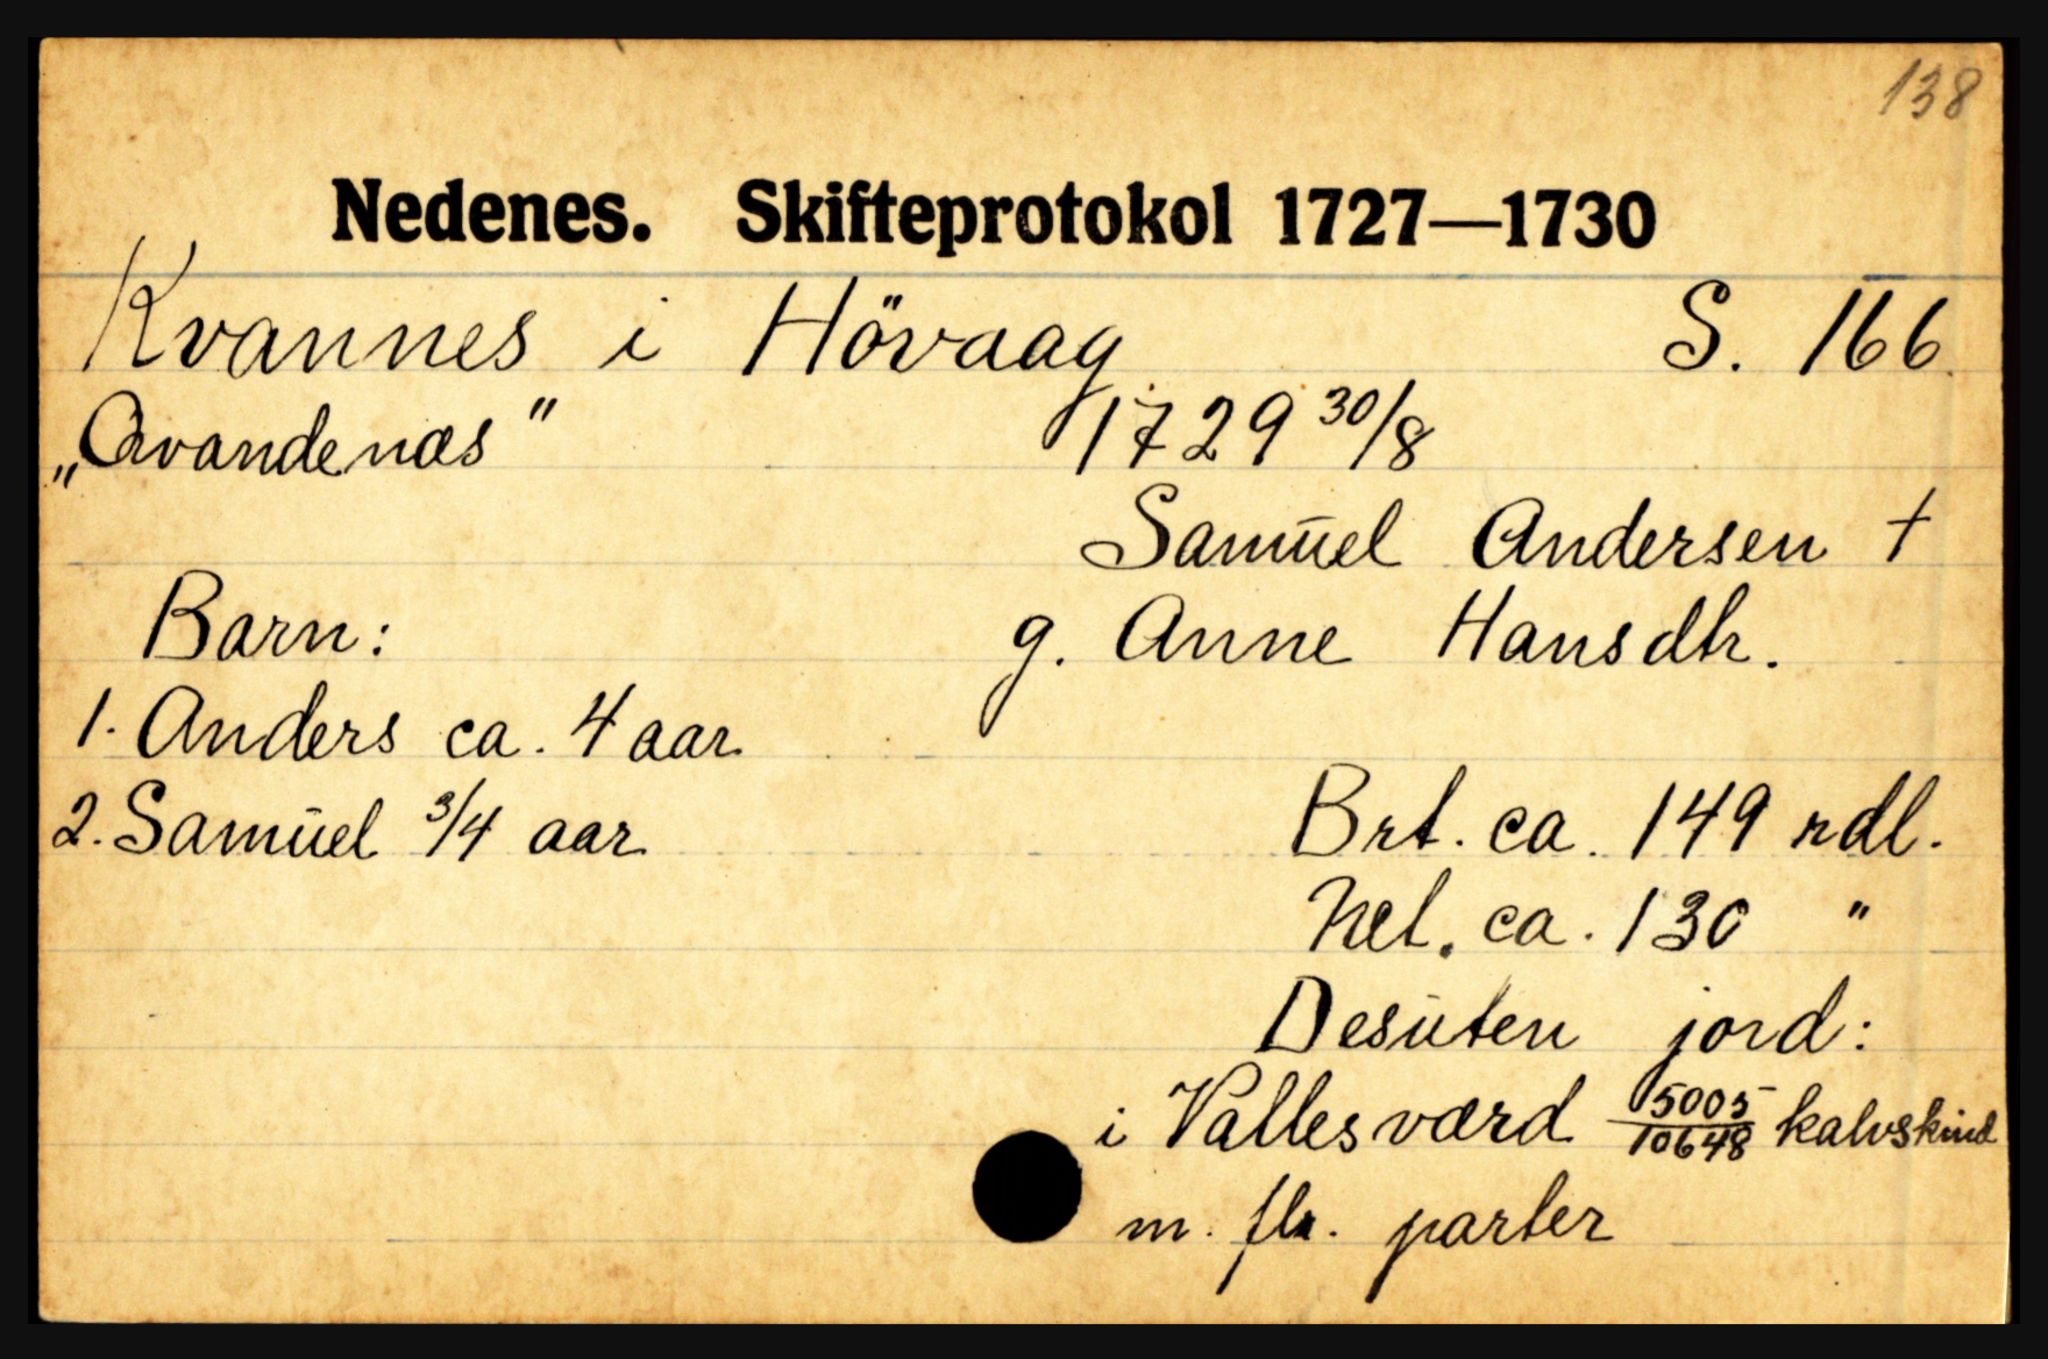 138
Nedenes. Skifteprotokol 1727—1730
Kvannes i Hövaag S. 166
„Qvandenæs" 1729 30/8
Samūel Andersen †
Barn: g. Anne Hansdtr.
1. Anders ca. 4 aar
2. Samūel 3/4 aar Brt. ca. 149 rdl.
Net. ca. 130 "
Desūten jord:
i Vallesværd 5005/10648 kalvskind
m. flr. parter